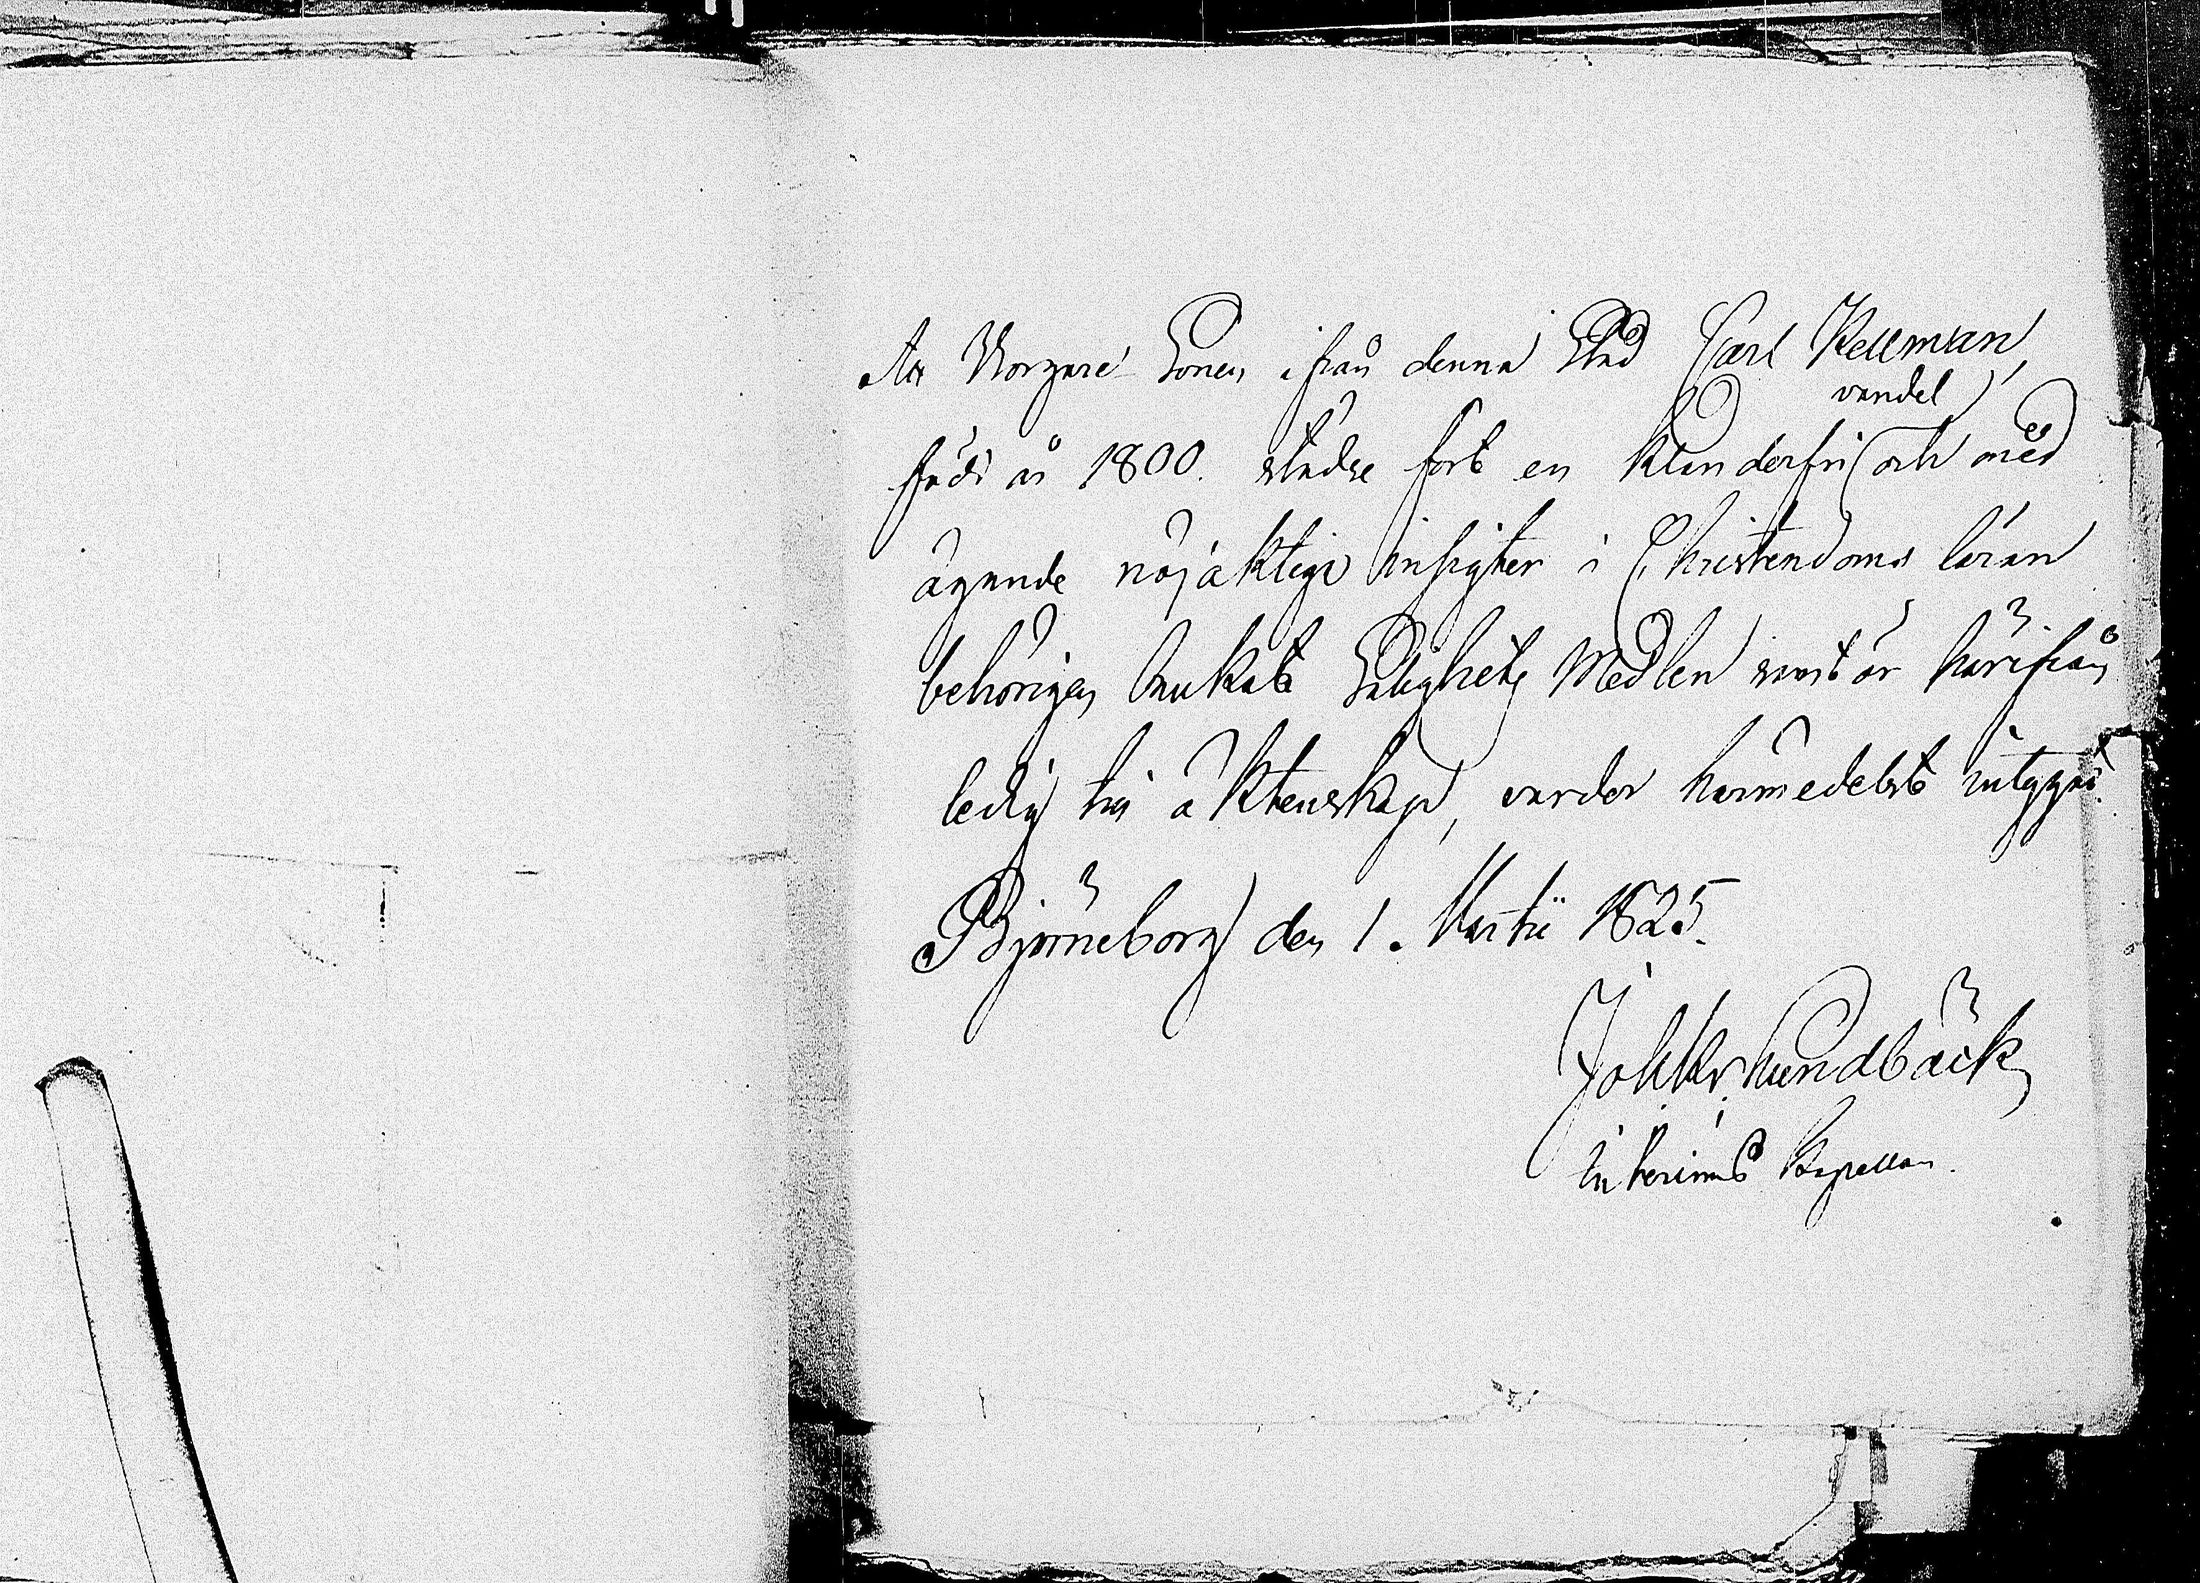 Att Borgare Sonen ifrån denna Stad Carl Kellman,
vandel
född år 1800. städse fört en klanderfri och med
ägande nöjaktige insigter i Christendoms läran
behörigen brukat Salighets Medlen samt är härifrån
ledig til äktenskap, varder härmedelst intygas.
Björneborg den 1. Martii 1825.
Joh Kr Lundbäck
Interims Kapellan.